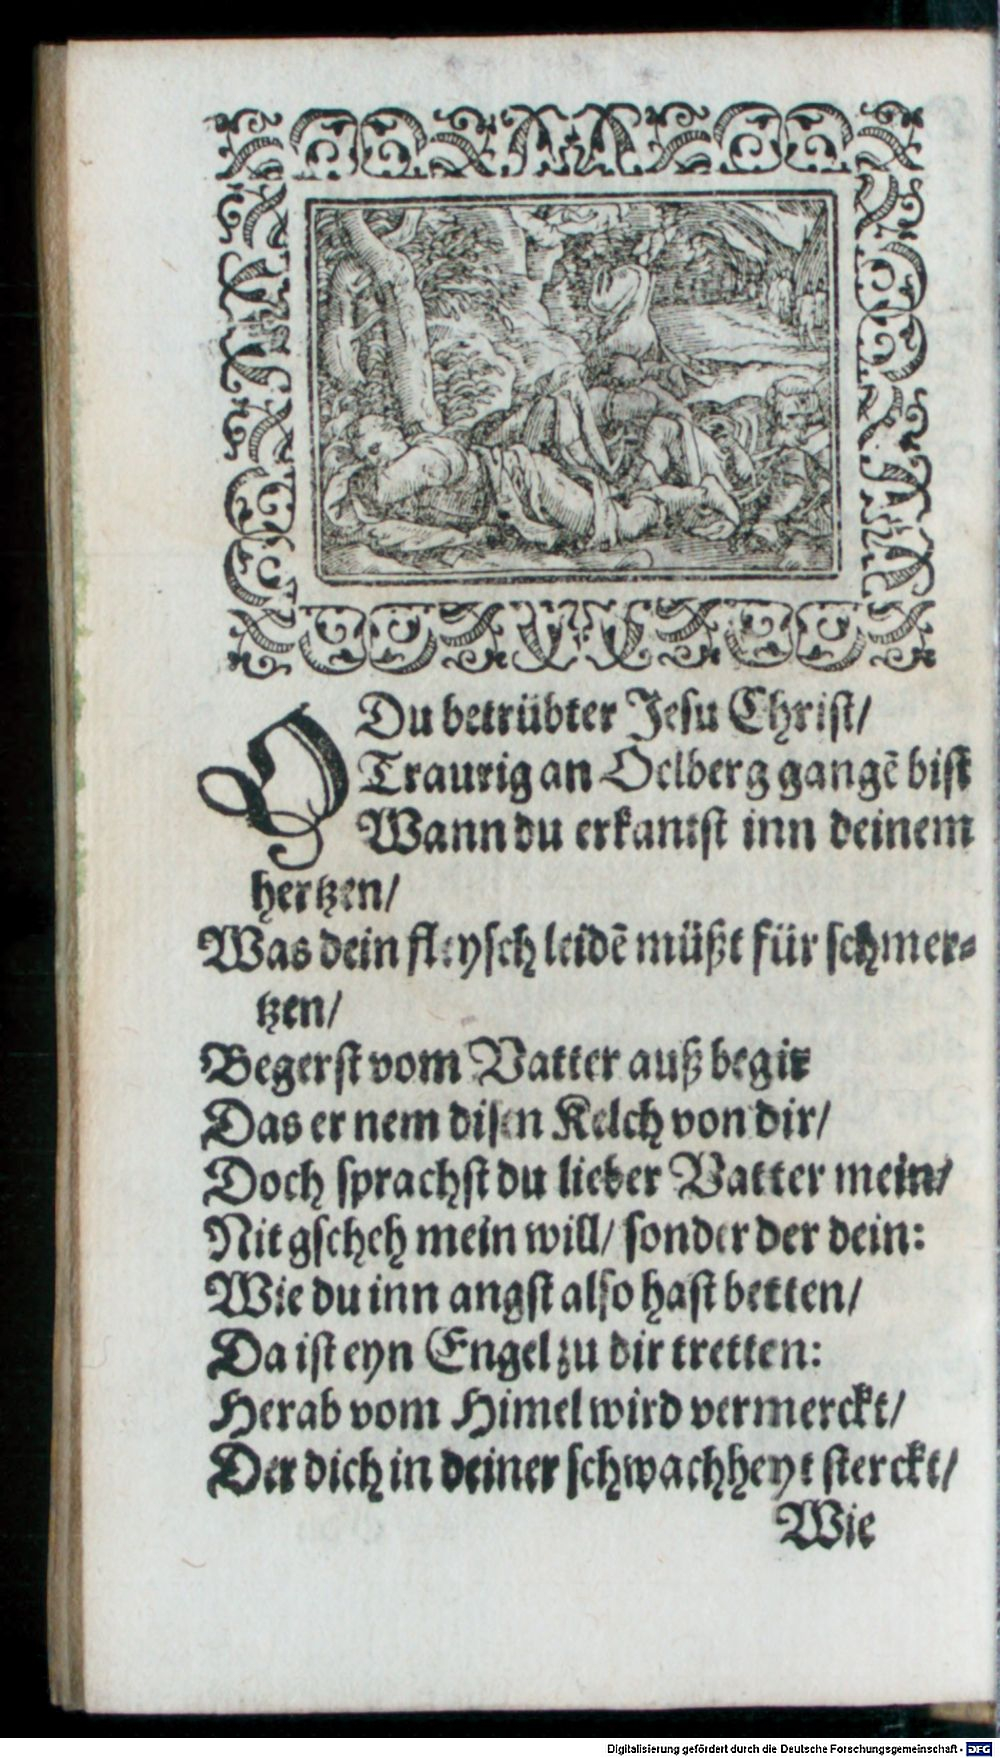 O Du betrübter Jesu Christ/
Traurig an Oelberg gangē bist
Wann du erkantst inn deinem
hertzen/
Was dein fleysch leidē müßt für schmer-
tzen/
Begerst vom Vatter auß begir
Das er nem disen Kelch von dir/
Doch sprachst du lieber Vatter mein/
Nit gscheh mein will/ sonder der dein:
Wie du inn angst also hast betten/
Da ist eyn Engel zu dir tretten:
Herab vom Himel wird vermerckt/
Der dich in deiner schwachheyt sterckt/
Wie
Digitalisierung gefördert durch die Deutsche Forschungsgemeinschaft - DFG